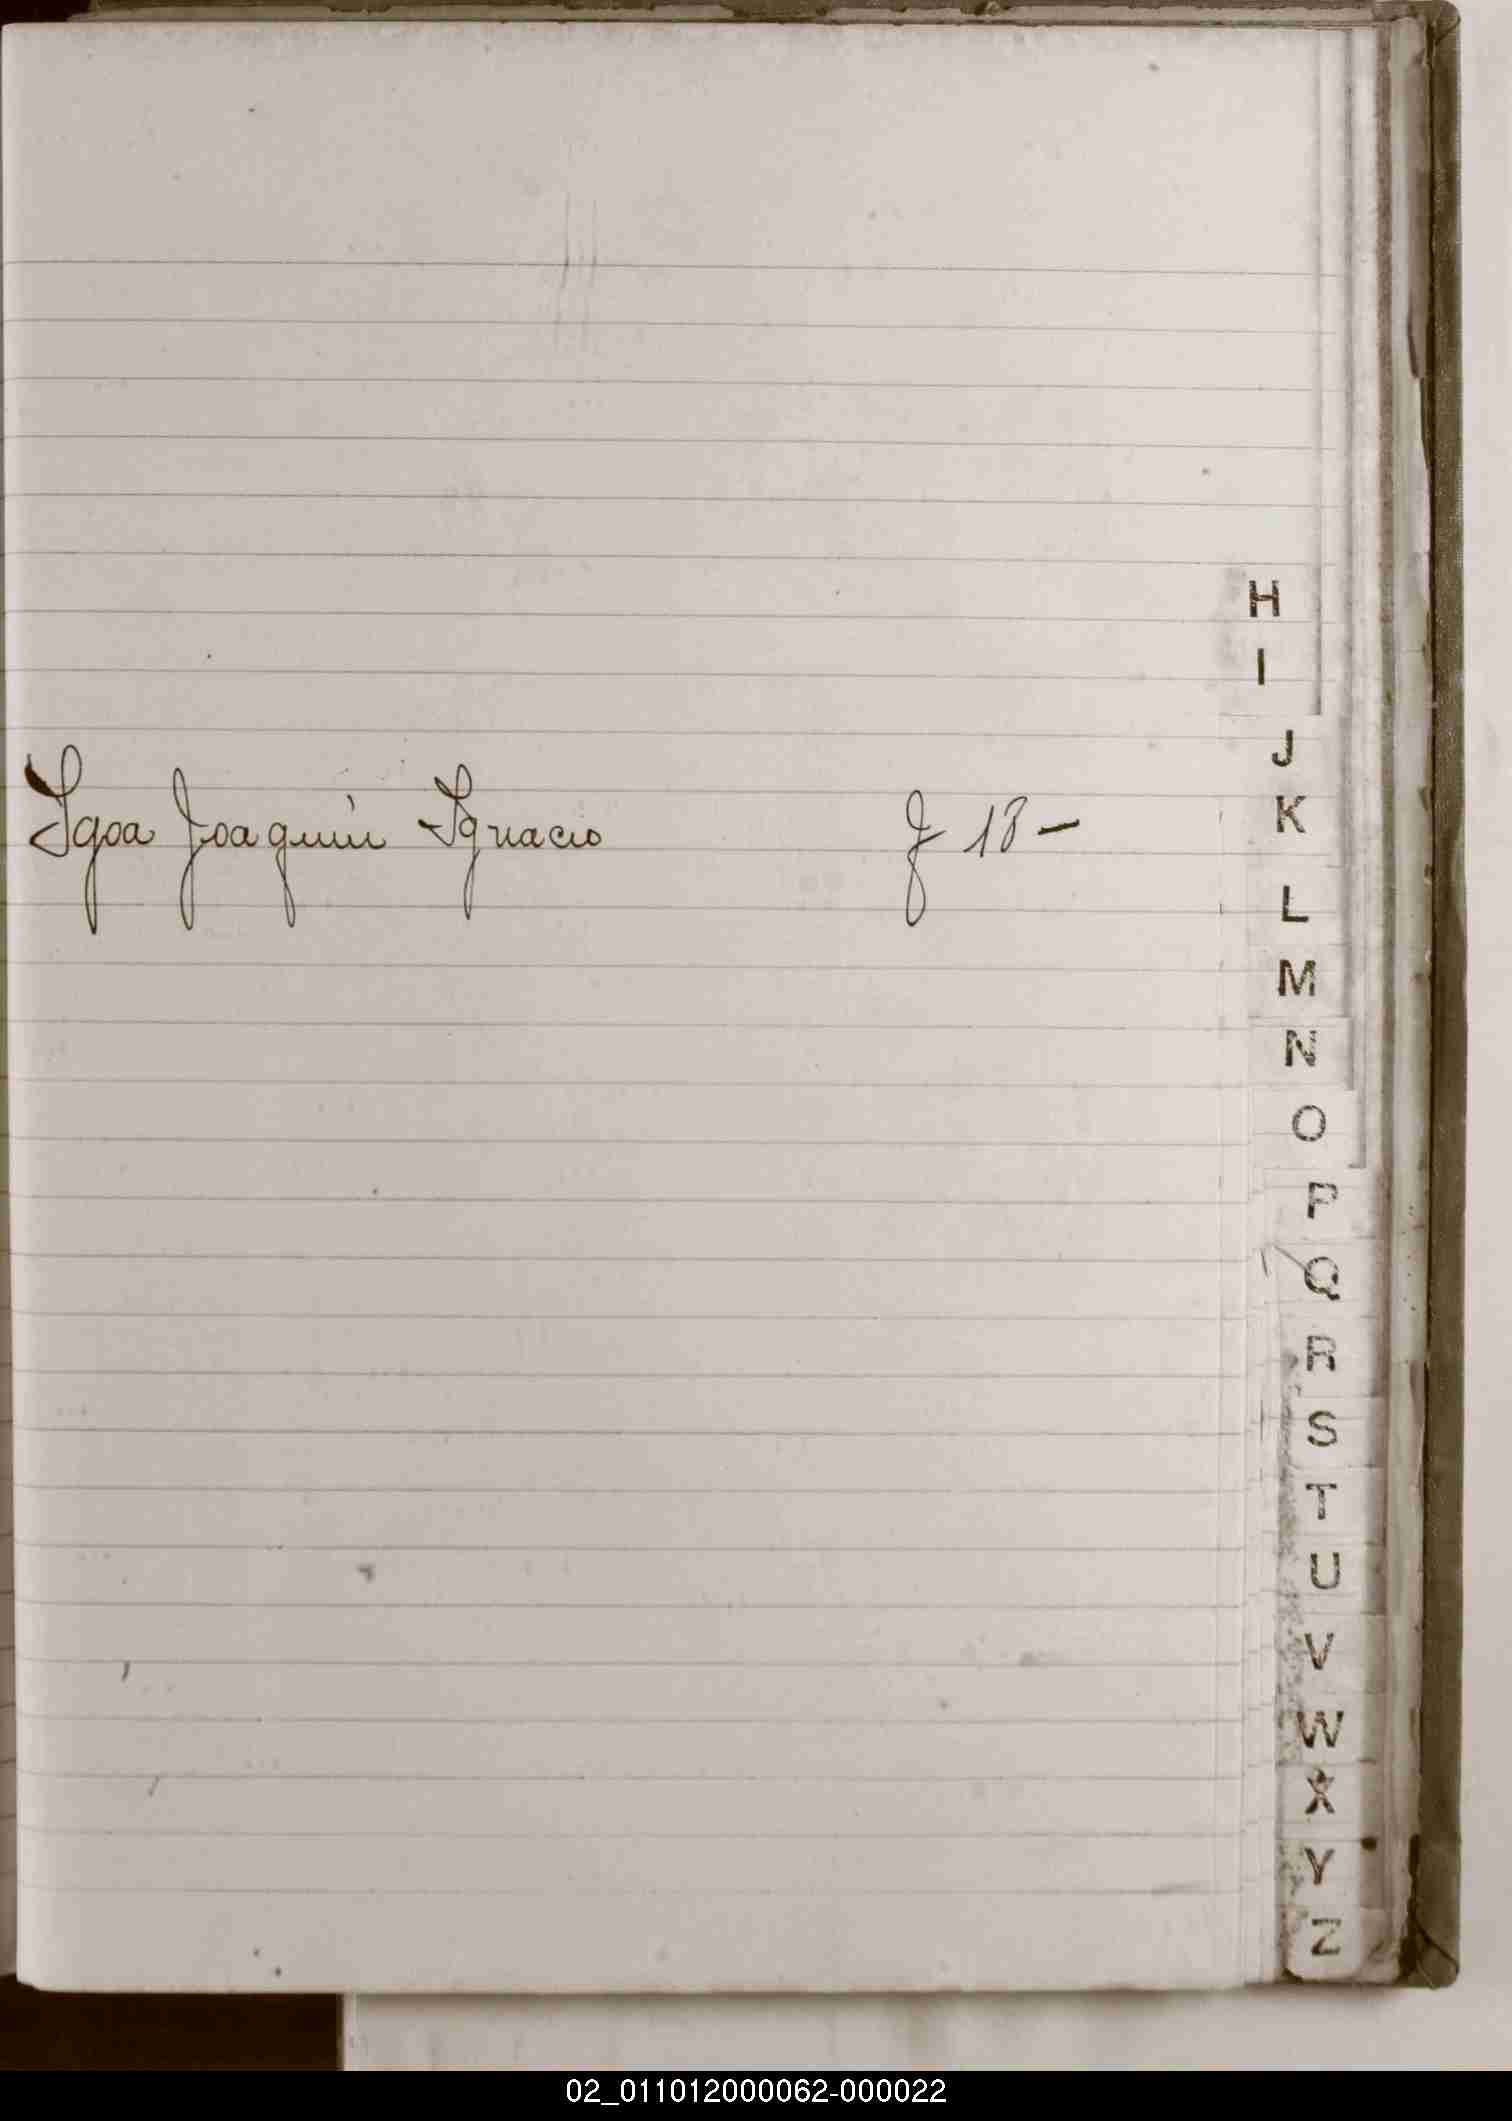 Igoa Joaquín Ignacio f 18 -
H
I
J
K
L
M
N
O
P
Q
R
S
T
U
V
W
X
Y
Z
02_011012000062-000022